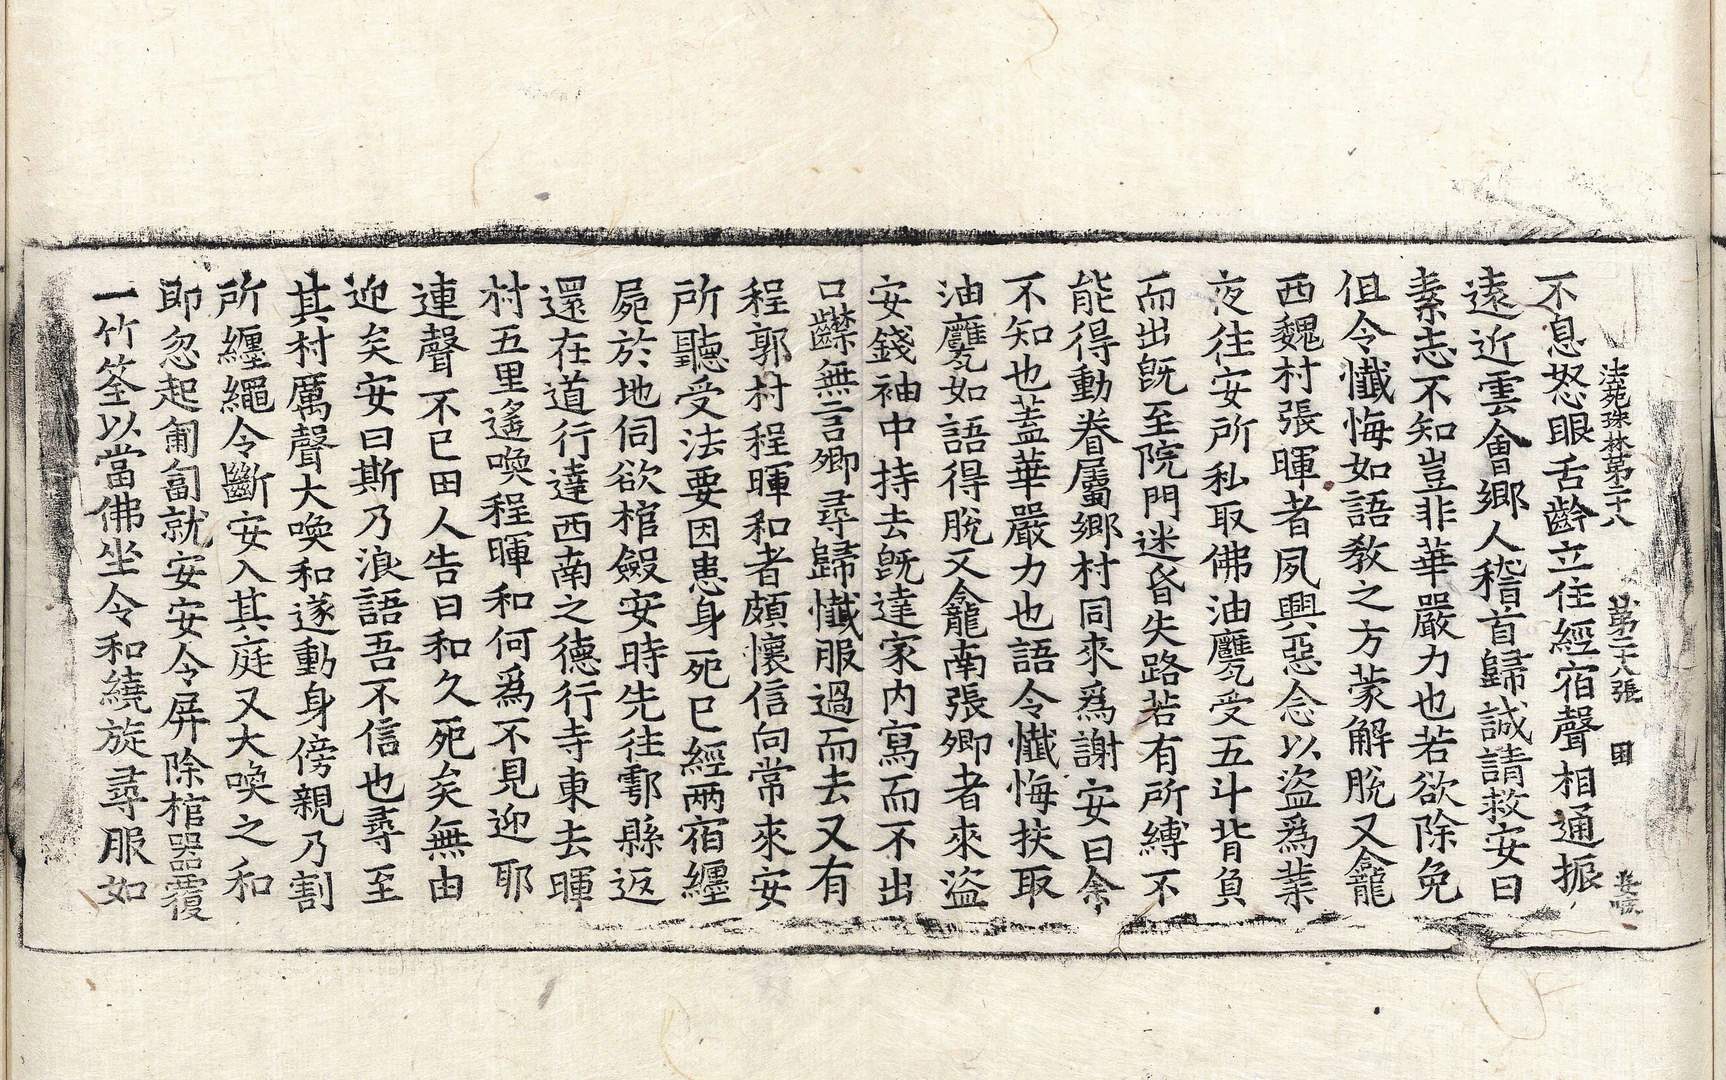 法苑珠林第二十八 第二十八張 困
不息怒眼舌齗立住經宿聲相通振
遠近雲會鄉人稽首歸誠請救安曰
素志不知豈非華嚴力也若欲除免
但令懺悔如語教之方蒙解脫又龕
西魏村張暉者夙興惡念以盜爲業
夜往安所私取佛油甕受五斗背負
而出旣至院門迷昏失路若有所縛不
能得動眷屬鄉村同來爲謝安曰余
不知也蓋華嚴力也語令懺悔扶取
油甕如語得脫又龕南張卿者來盜
安錢袖中持去旣達家內寫而不出
口噤無言卿尋歸懺服過而去又有
程郭村程暉和者頗懷信向常來安
所聽受法要因患身死已經兩宿纏
屍於地伺欲棺斂安時先往鄠縣返
還在道行達西南之德行寺東去暉
村五里遙喚程暉和何爲不見迎耶
連聲不已田人告曰和久死矣無由
迎矣安曰斯乃浪語吾不信也尋至
其村厲聲大喚和遂動身傍親乃割
所纏繩令斷安入其庭又大喚之和
即忽起匍匐就安安令屏除棺器覆
一竹筌以當佛坐令和繞旋尋服如